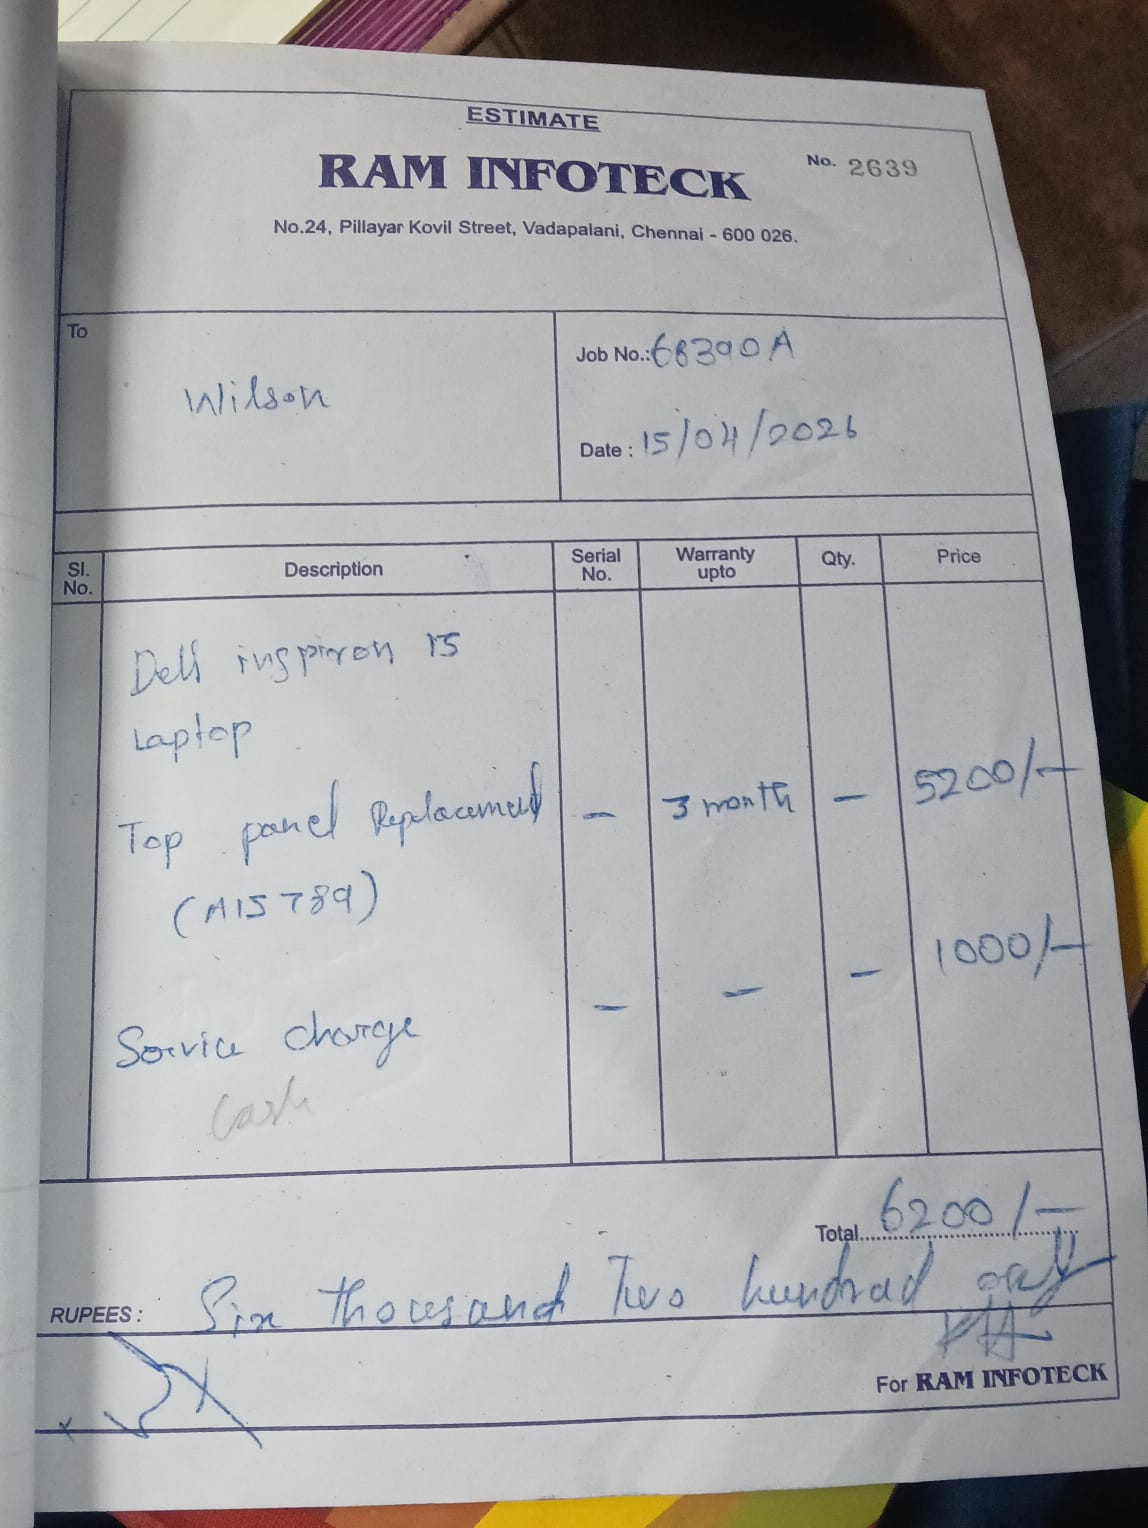 ESTIMATE
RAM INFOTECK
No. 2639
No.24, Pillayar Kovil Street, Vadapalani, Chennai - 600 026.
To
Wilson
Job No.: 68390A
Date : 15/04/2026
Sl. No. Description Serial No. Warranty upto Qty. Price
Dell inspiron 15
Laptop
Top panel Replacement - 3 month - 5200/-
(A15789)
Service charge - - - 1000/-
Cash
Total 6200/-
RUPEES : Six thousand Two hundrad only
For RAM INFOTECK